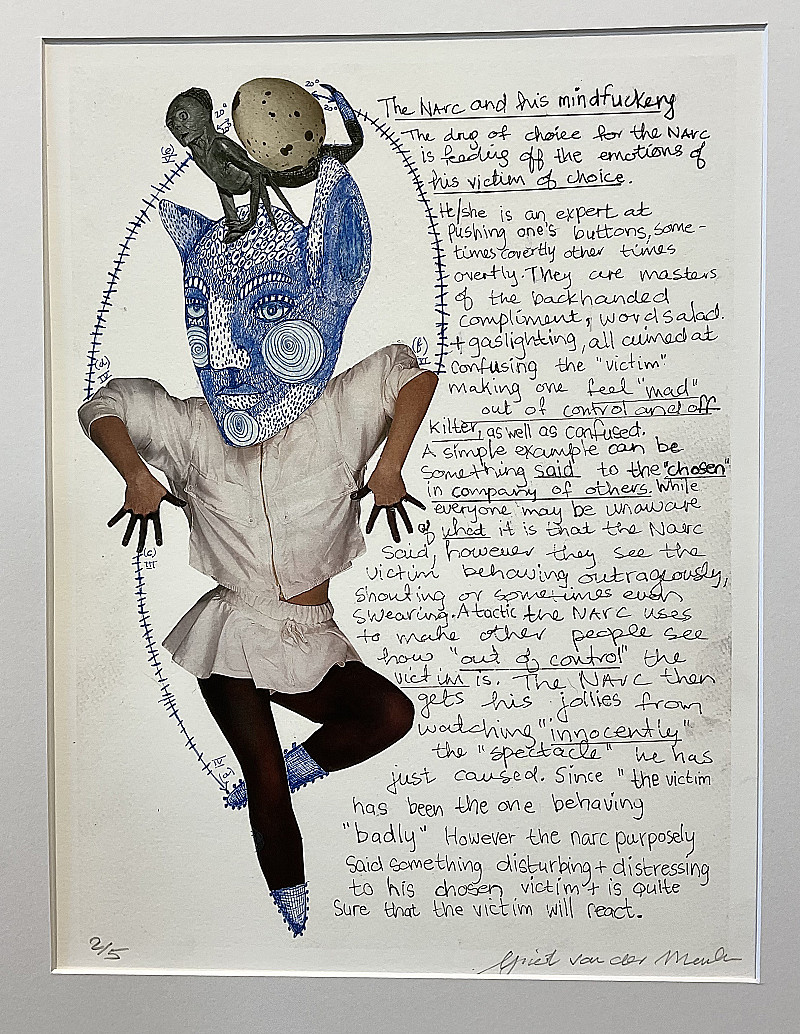 The NARC and his mindfuckery
The drug of choice for the NARC
is feeding off the emotions of
his victim of choice.
He/she is an expert at
pushing one's buttons, some-
times covertly other times
overtly. They are masters
of the backhanded
compliment, word salad.
+ gaslighting, all aimed at
confusing the "victim"
making one feel "mad"
out of control and off
killter, as well as confused.
A simple example can be
something said to the "chosen"
in company of others. While
everyone may be unaware
of what it is that the Narc
said, however they see the
victim behaving outrageously,
shouting or sometimes even
swearing. A tactic the NARC uses
to make other people see
how "out of control" the
victim is. The NARC then
gets his jollies from
watching "innocently"
the "spectacle" he has
just caused. Since "the victim
has been the one behaving
"badly" However the narc purposely
said something disturbing + distressing
to his chosen victim + is quite
sure that the victim will react.
20°
20°
20°
(e)
V
(d)
IV
(f)
VI
(c)
III
IV
(a)
2/5
van der